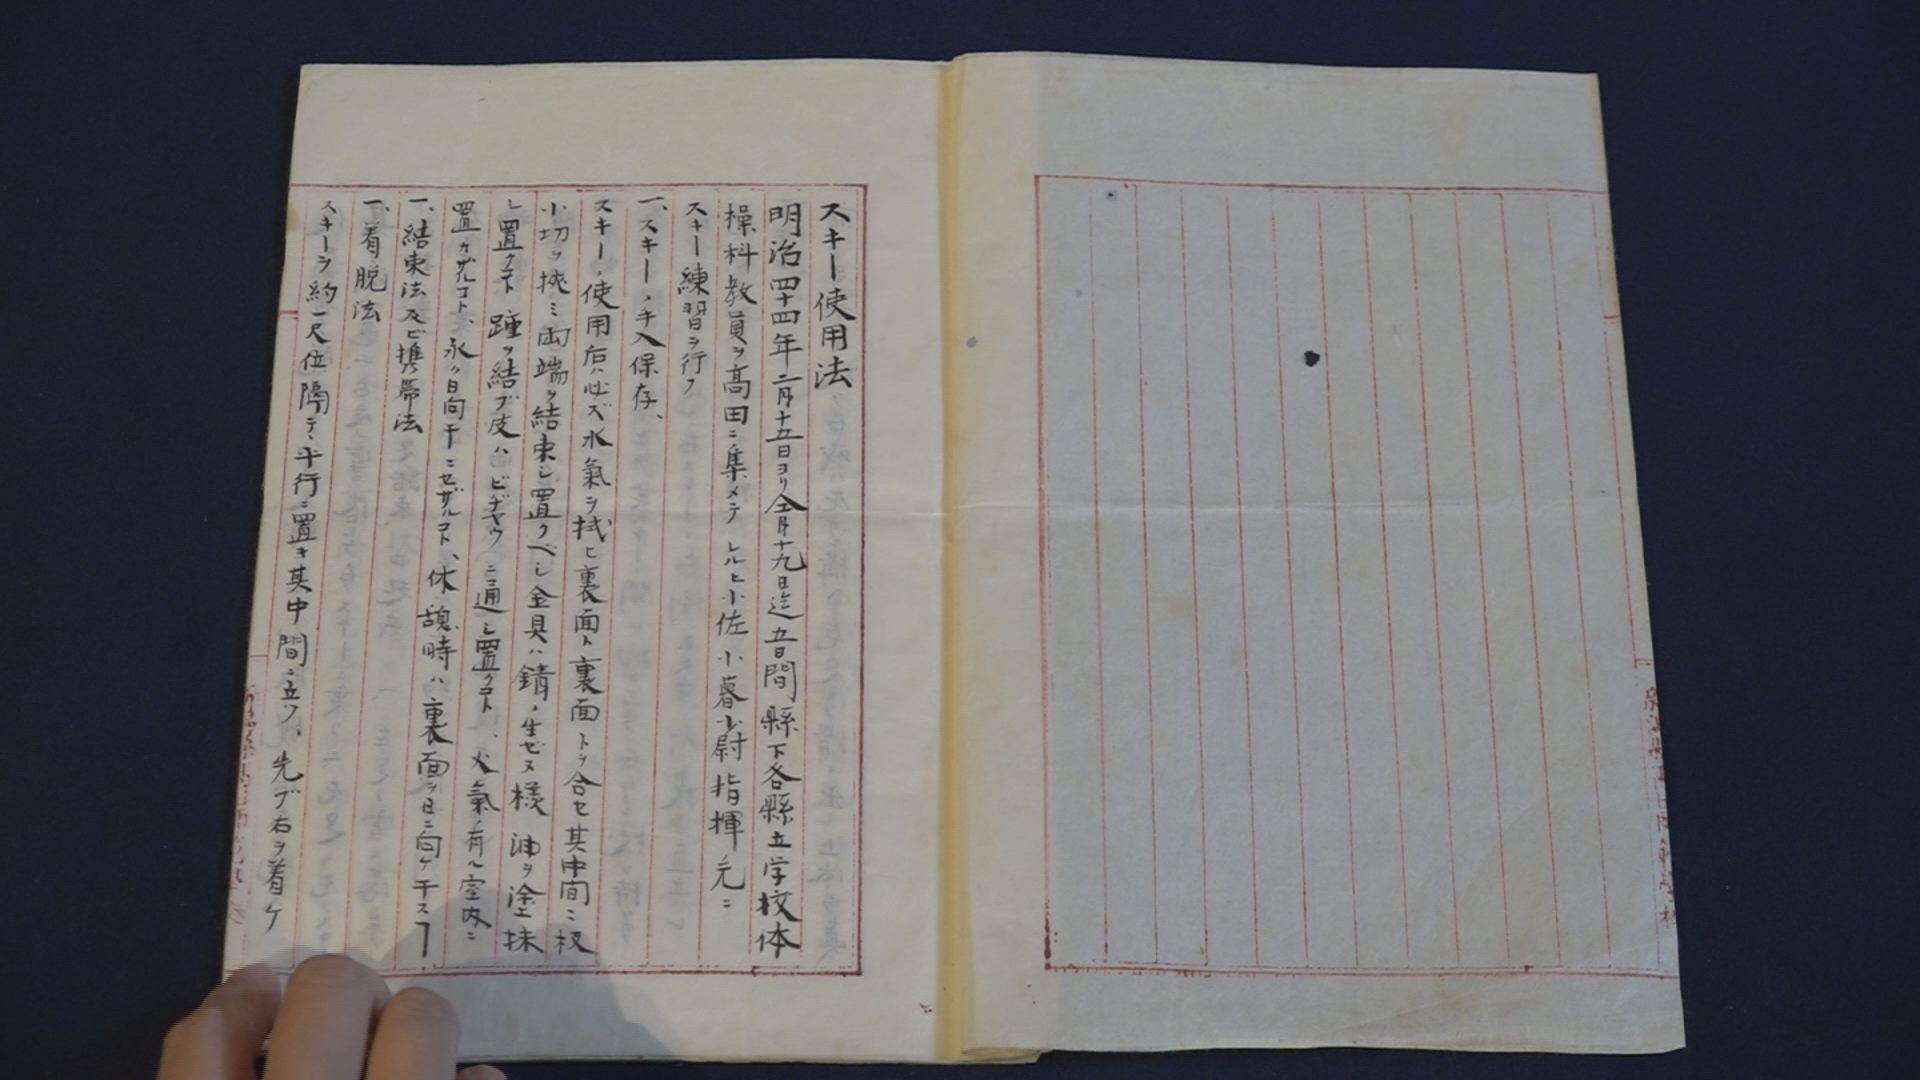 スキー使用法
明治四十四年二月十五日ヨリ仝月十九日迄五日間縣下各縣立学校体
操科教員ヲ高田ニ集メテレルヒ少佐小暮少尉指揮ノ元ニ
スキー練習ヲ行フ
一、スキーノ手入保存、
スキーノ使用后ハ必ズ水氣ヲ拭ヒ裏面ト裏面トヲ合セ其中間ニ板
小切ヲ挾ミ両端ヲ結束シ置クベシ金具ハ錆ノ生ゼヌ様油ヲ塗抹
シ置クコト踵ヲ結ブ皮ハビヂョウニ通シ置クコト、火氣ノ有ル室内ニ
置カザルコト、永ク日向干ニセザルコト、休憩時ハ裏面ヲ日ニ向ケ干スヿ
一、結束法及ビ携帯法
一、着脱法
スキーヲ約一尺位隔テ、平行ニ置キ其中間ニ立ツ、先ヅ右ヲ着ケ